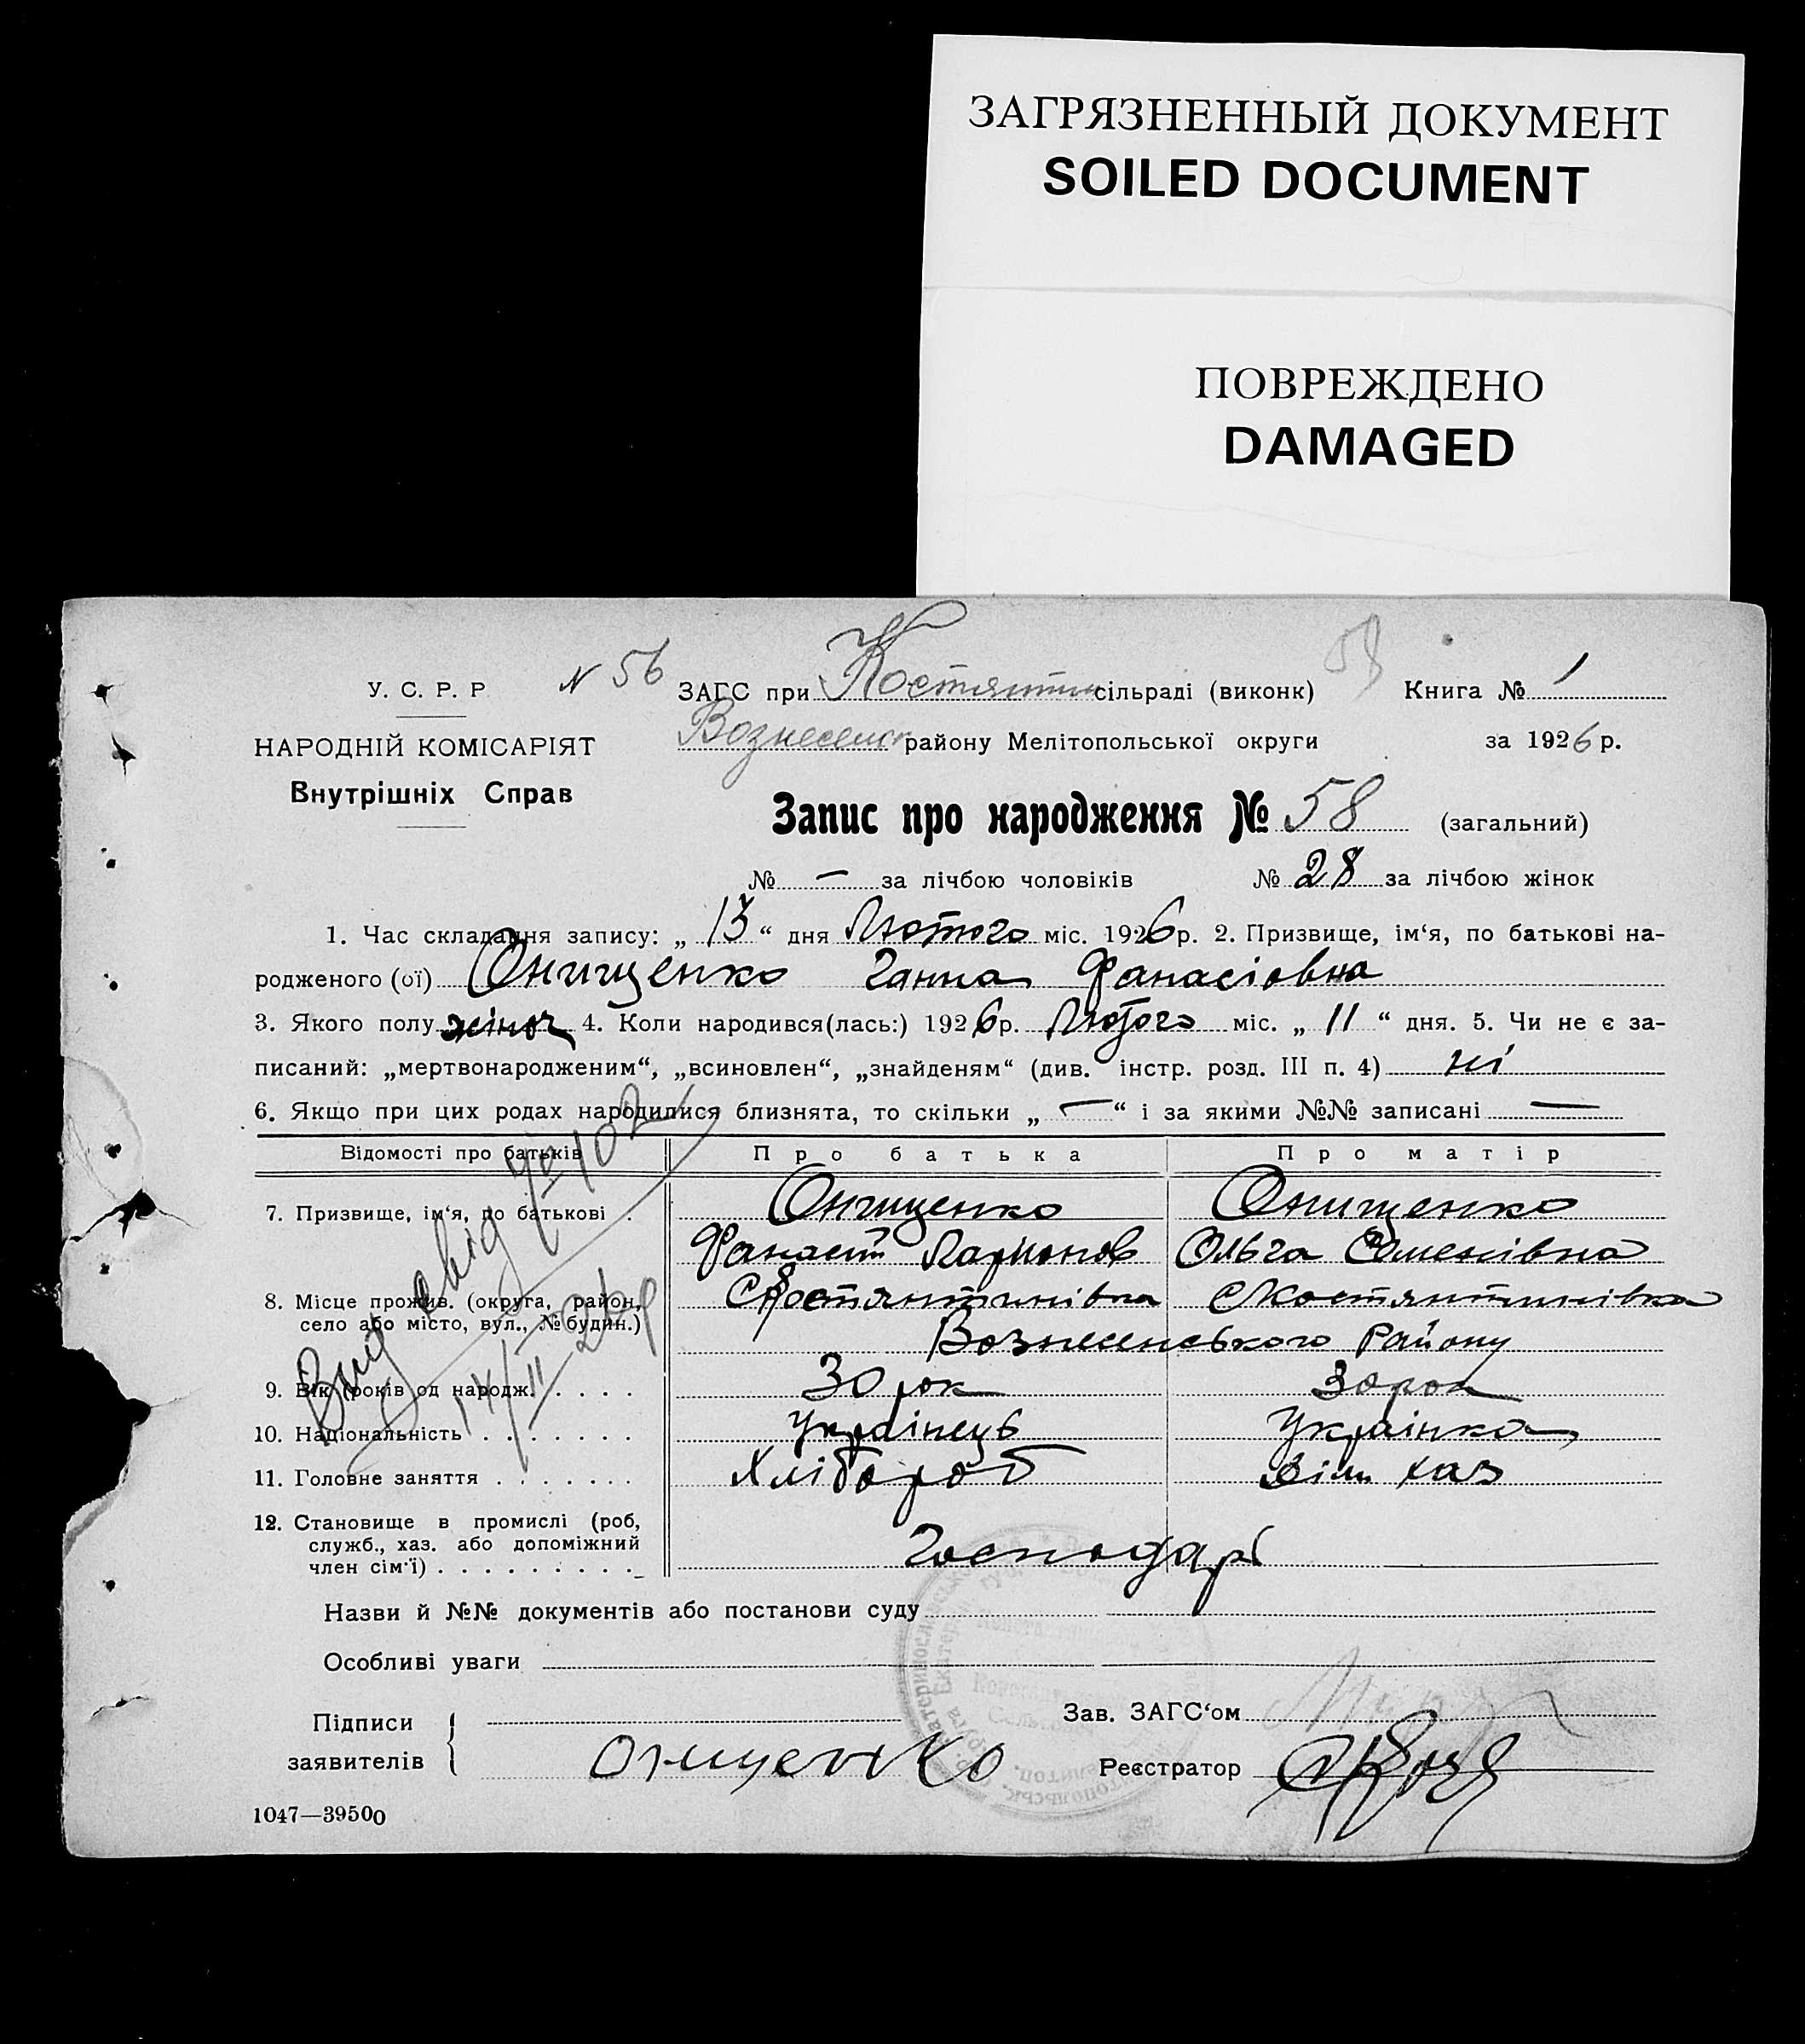 ЗАГРЯЗНЕННЫЙ ДОКУМЕНТ
SOILED DOCUMENT
ПОВРЕЖДЕНО
DAMAGED
У. С. Р. Р
НАРОДНІЙ КОМІСАРІЯТ
Внутрішніх Справ
N 56
ЗАГС при Костянтин сільраді (виконк)
58
Книга № 1
Вознесенск району Мелітопольської округи
за 1926 р.
Запис про народження № 58 (загальний)
№ — за лічбою чоловіків № 28 за лічбою жінок
1. Час складання запису: „ 13 “ дня Лютого міс. 1926 р. 2. Призвище, ім‘я, по батькові на-
родженого (ої) Онищенко Ганна Фанасіовна
3. Якого полу жіноч 4. Коли народився(лась:) 1926 р. Лютого міс. „ 11 “ дня. 5. Чи не є за-
писаний: „мертвонародженим“, „всиновлен“, „знайденям“ (див. інстр. розд. III п. 4) ні
6. Якщо при цих родах народилися близнята, то скільки „ — “ і за якими №№ записані —
Відомості про батьків Про батька Про матір
7. Призвище, ім‘я, по батькові . Онищенко Онищенко
Фанасий Ларионов Ольга Семенівна
8. Місце прожив. (округа, район, село або місто, вул., № будин.) С Костянтинівка С Костянтинівка
Вознесенського Району
9. Вік (років од народж. . . . . 30 рок 30 рок
10. Національність . . . . . . . Українець Українка
11. Головне заняття . . . . . . . Хлібороб Сільхаз
12. Становище в промислі (роб,
служб., хаз. або допоміжний
член сім‘ї) . . . . . . . . . Господарі
Вид свід № 102
14/II 26 р
Назви й №№ документів або постанови суду
Особливі уваги
Підписи заявителів
Онищенко
Зав. ЗАГС‘ом
Реєстратор
1047—39500